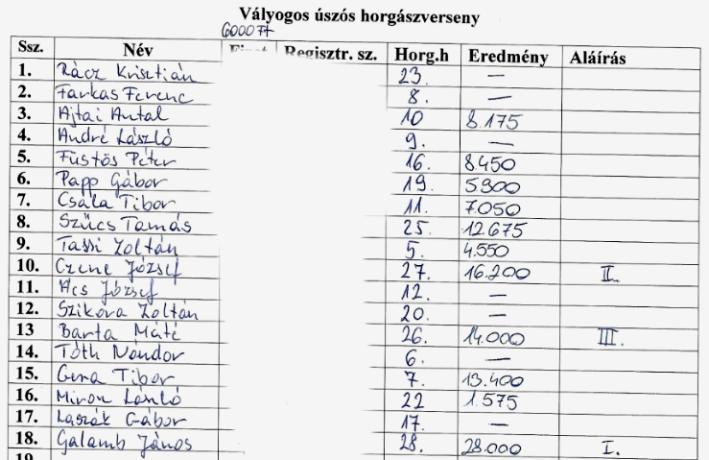 Vályogos úszós horgászverseny
6000 Ft
Ssz. Név Regisztr. sz. Horg.h Eredmény Aláírás
1. Rácz Krisztián 23. —
2. Farkas Ferenc 8. —
3. Ajtai Antal 10 8.175
4. André László 9. —
5. Füstös Péter 16. 8450
6. Papp Gábor 19. 5900
7. Csála Tibor 11. 7.050
8. Szűcs Tamás 25. 12675
9. Tassi Zoltán 5. 4.550
10. Czene József 27. 16.200 II.
11. Ács József 12. —
12. Szikora Zoltán 20. —
13 Barta Máté 26. 14.000 III.
14. Tóth Nándor 6. —
15. Gera Tibor 7. 13.400
16. Miron László 22 1.575
17. Laszák Gábor 17. —
18. Galamb János 28. 28.000 I.
19